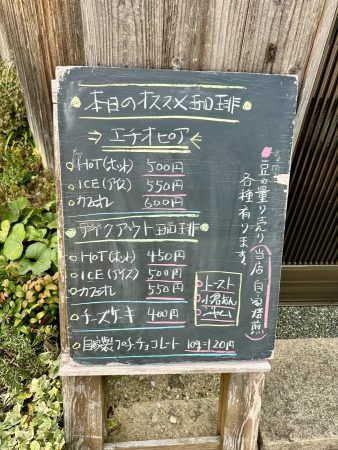 本日のオススメ珈琲
エチオピア
HOT(ホット) 500円
ICE(アイス) 550円
カフェオレ 600円
テイクアウト珈琲
HOT(ホット) 450円
ICE(アイス) 500円
カフェオレ 550円
チーズケーキ 400円
トースト
小倉あん
ジャム
自家製 チョコレート 10g=120円
豆の量り売り(当店自家焙煎)
各種有ります。